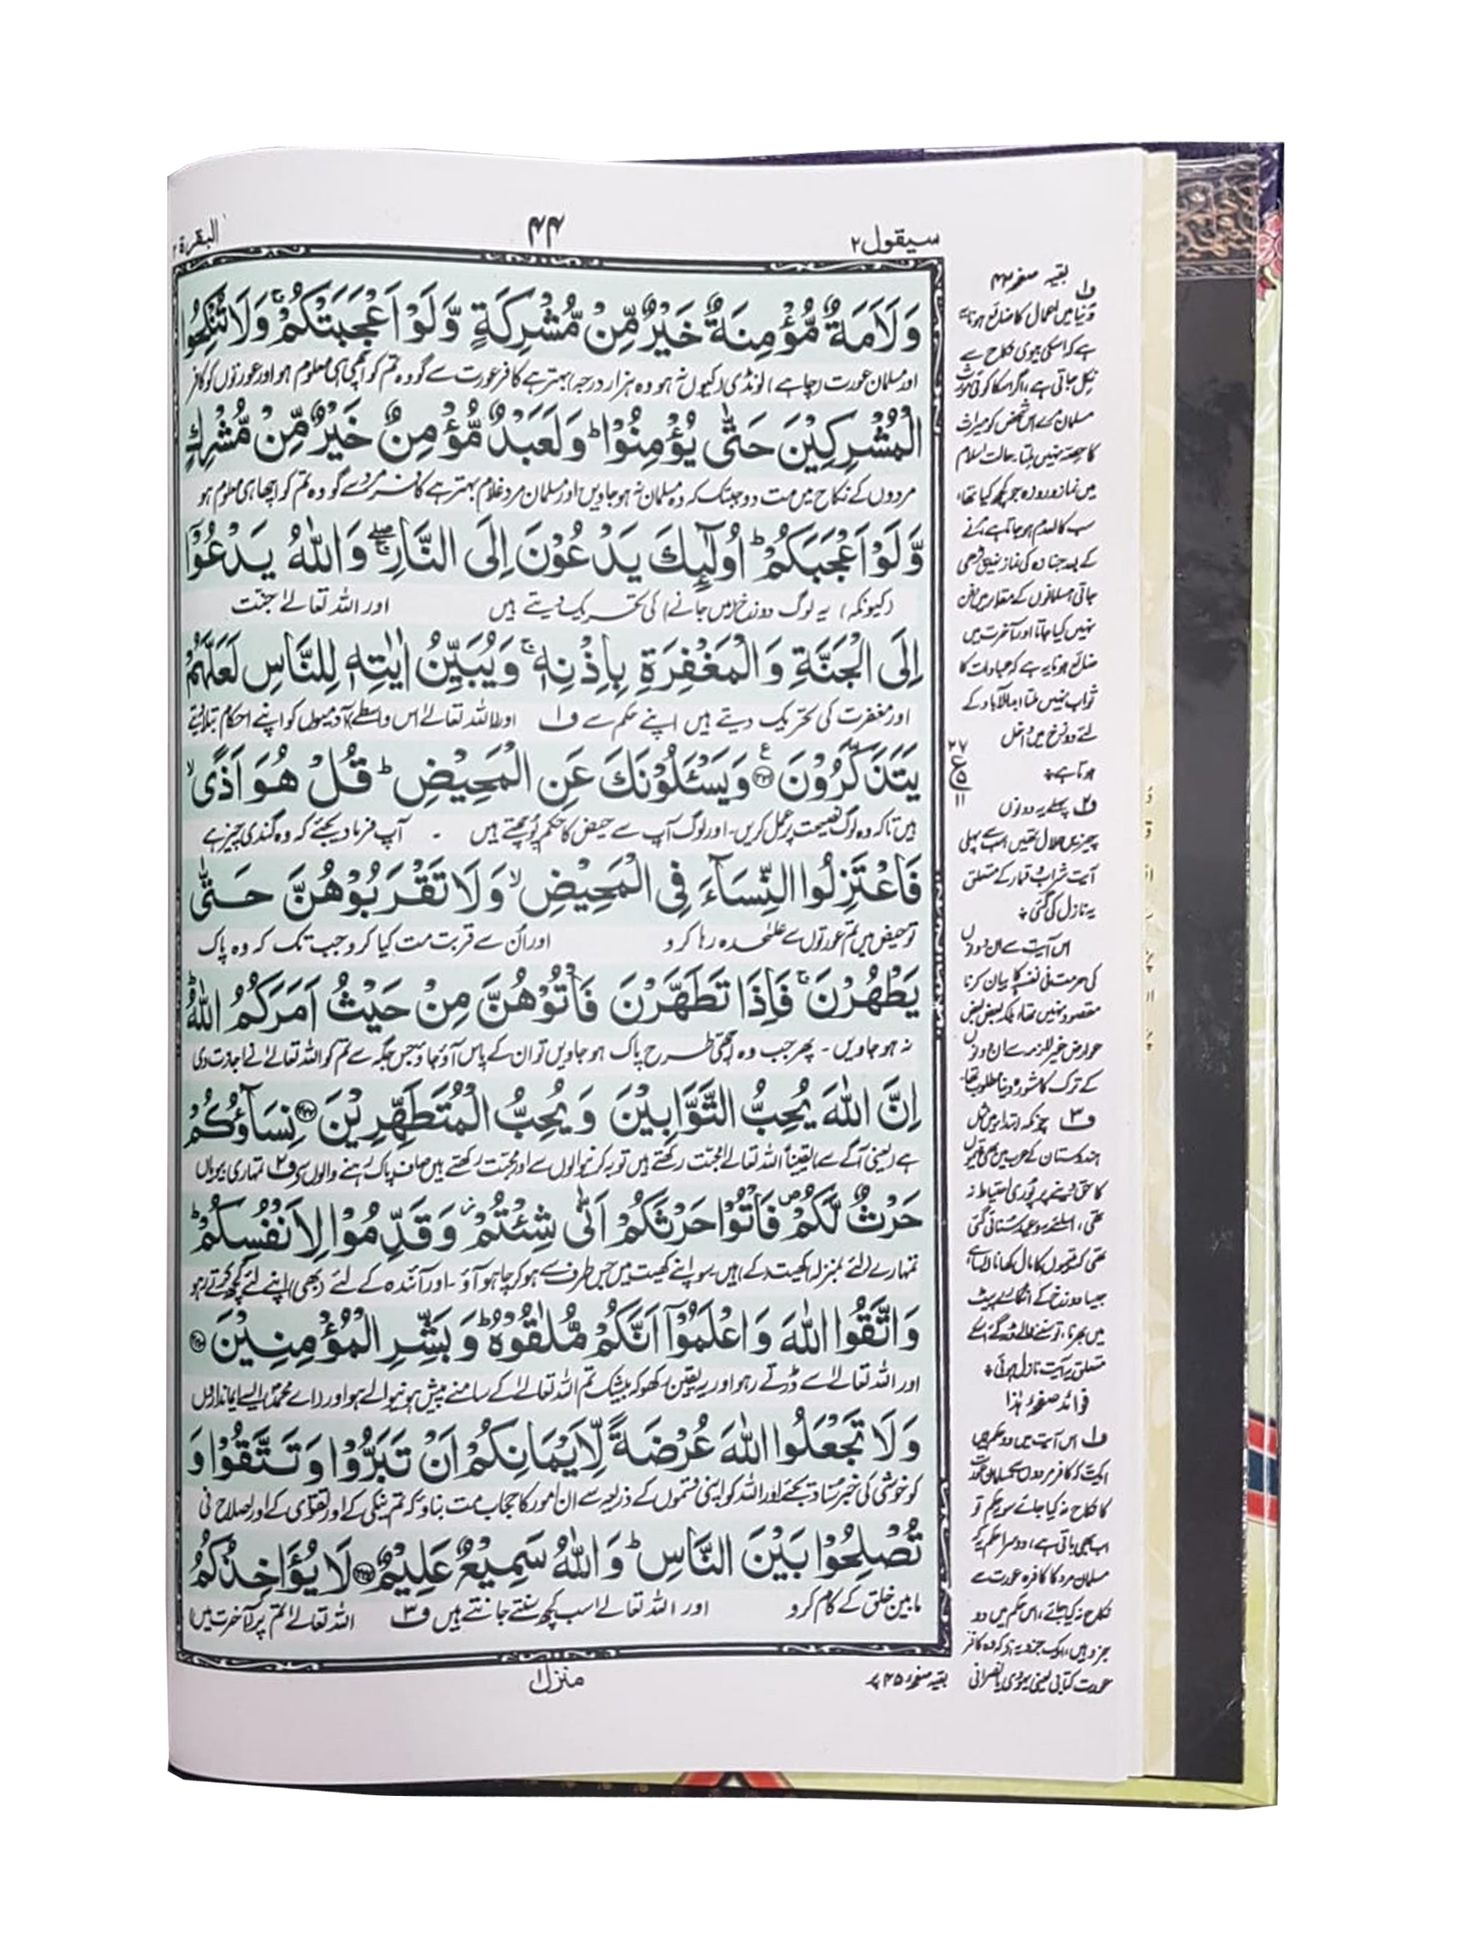 سیقول ۲
۴۴
البقرة ۲
وَلَاَمَةٌ مُّؤْمِنَةٌ خَيْرٌ مِّنْ مُّشْرِكَةٍ وَّلَوْ اَعْجَبَتْكُمْ ۚ وَلَا تُنْكِحُوا
اور مسلمان عورت (چاہے) لونڈی (کیوں نہ ہو وہ ہزار درجہ) بہتر ہے کافر عورت سے گو وہ تم کو اچھی ہی معلوم ہو اور عورتوں کو کافر
الْمُشْرِكِيْنَ حَتّٰى يُؤْمِنُوْا ؕ وَلَعَبْدٌ مُّؤْمِنٌ خَيْرٌ مِّنْ مُّشْرِكٍ
مردوں کے نکاح میں مت دو جبتک کہ وہ مسلمان نہ ہو جاویں اور مسلمان مرد غلام بہتر ہے کافر مرد سے گو وہ تم کو اچھا ہی معلوم ہو
وَّلَوْ اَعْجَبَكُمْ ؕ اُولٰٓئِكَ يَدْعُوْنَ اِلَى النَّارِ ۖۚ وَاللّٰهُ يَدْعُوْٓا
(کیونکہ) یہ لوگ دوزخ (میں جانے) کی تحریک دیتے ہیں اور اللہ تعالےٰ جنت
اِلَى الْجَنَّةِ وَالْمَغْفِرَةِ بِاِذْنِهٖ ۚ وَيُبَيِّنُ اٰيٰتِهٖ لِلنَّاسِ لَعَلَّهُمْ
اور مغفرت کی تحریک دیتے ہیں اپنے حکم سے ف۱ اور اللہ تعالےٰ اس واسطے آدمیوں کو اپنے احکام بتلا دیتے
يَتَذَكَّرُوْنَ ۝ وَيَسْـَٔلُوْنَكَ عَنِ الْمَحِيْضِ ؕ قُلْ هُوَ اَذًى ۙ
ہیں تاکہ وہ لوگ نصیحت پر عمل کریں۔ اور لوگ آپ سے حیض کا حکم پوچھتے ہیں ۔ آپ فرما دیجئے کہ وہ گندی چیز ہے
فَاعْتَزِلُوا النِّسَآءَ فِى الْمَحِيْضِ ۙ وَلَا تَقْرَبُوْهُنَّ حَتّٰى
تو حیض میں تم عورتوں سے علیٰحدہ رہا کرو اور ان سے قربت مت کیا کرو جب تک کہ وہ پاک
يَطْهُرْنَ ۚ فَاِذَا تَطَهَّرْنَ فَاْتُوْهُنَّ مِنْ حَيْثُ اَمَرَكُمُ اللّٰهُ ؕ
نہ ہو جاویں ۔ پھر جب وہ اچھی طرح پاک ہو جاویں تو ان کے پاس آؤ جاؤ جس جگہ سے تم کو اللہ تعالےٰ نے اجازت دی
اِنَّ اللّٰهَ يُحِبُّ التَّوَّابِيْنَ وَيُحِبُّ الْمُتَطَهِّرِيْنَ ۝ نِسَآؤُكُمْ
ہے (یعنی آگے سے) یقیناً اللہ تعالےٰ محبت رکھتے ہیں توبہ کرنیوالوں سے اور محبت رکھتے ہیں صاف پاک رہنے والوں سے ف۲ تمہاری بیویاں
حَرْثٌ لَّكُمْ ۪ فَاْتُوْا حَرْثَكُمْ اَنّٰى شِئْتُمْ ۫ وَقَدِّمُوْا لِاَنْفُسِكُمْ ؕ
تمہارے لئے بمنزلہ کھیت (کے) ہیں سو اپنے کھیت میں جس طرف سے ہو کر چاہو آؤ ۔ اور آئندہ کے لئے (بھی) اپنے لئے کچھ کرتے رہو
وَاتَّقُوا اللّٰهَ وَاعْلَمُوْٓا اَنَّكُمْ مُّلٰقُوْهُ ؕ وَبَشِّرِ الْمُؤْمِنِيْنَ ۝
اور اللہ تعالےٰ سے ڈرتے رہو اور یہ یقین رکھو کہ بیشک تم اللہ تعالےٰ کے سامنے پیش ہونیوالے ہو اور (اے محمدؐ) ایسے ایمانداروں
وَلَا تَجْعَلُوا اللّٰهَ عُرْضَةً لِّاَيْمَانِكُمْ اَنْ تَبَرُّوْا وَتَتَّقُوْا وَ
کو خوشی کی خبر سنا دیجئے اور اللہ کو اپنی قسموں کے ذریعہ سے ان امور کا حجاب مت بناؤ کہ تم نیکی کے اور تقوی کے اور اصلاح فی
تُصْلِحُوْا بَيْنَ النَّاسِ ؕ وَاللّٰهُ سَمِيْعٌ عَلِيْمٌ ۝ لَا يُؤَاخِذُكُمُ
مابین خلق کے کام کرو اور اللہ تعالےٰ سب کچھ سنتے جانتے ہیں ف۳ اللہ تعالےٰ تم پر (آخرت میں)
منزل ۱
بقیہ صفحہ ۴۵ پر
بقیہ صفحہ ۴۳
ف۱
دنیا میں اعمال کا ضائع ہونا یہ
ہے کہ اسکی بیوی نکاح سے
نکل جاتی ہے، اگر اسکا کوئی مورث
مسلمان مرے اس شخص کو میراث
کا حصہ نہیں ملتا، حالت اسلام
میں نماز و روزہ جو کچھ کیا تھا،
سب کالعدم ہو جاتا ہے، مرنے
کے بعد جنازہ کی نماز نہیں پڑھی
جاتی، مسلمانوں کے مقابر میں دفن
نہیں کیا جاتا اور آخرت میں
ضائع ہونا یہ ہے کہ عبادات کا
ثواب نہیں ملتا، ابدالآباد کے
لئے دوزخ میں داخل
ہوتا ہے
۲۷
ع
۵
۱۱
ف۲ پہلے یہ دونوں
چیزیں حلال تھیں، سب سے پہلی
آیت شراب و قمار کے متعلق
یہ نازل کی گئی
اس آیت سے ان دونوں
کی حرمت فی نفسہ کا بیان کرنا
مقصود نہیں تھا، بلکہ بعض بعض
عوارض غیر لازمہ سے ان دونوں
کے ترک کا مشورہ دینا مطلوب تھا
ف۳ چونکہ ابتدا میں مثل
ہندوستان کے عرب میں بھی یتیموں
کا حق دینے پر پوری احتیاط نہ
تھی، اسلئے یہ وعید سنائی گئی
تھی کہ یتیموں کا مال کھانا ایسا ہے
جیسا دوزخ کے انگارے پیٹ
میں بھرنا، تو سننے والے ڈر گئے اسکے
متعلق یہ آیت نازل ہوئی
فوائد صفحہ ہذا
ف۱ اس آیت میں دو حکم ہیں
ایک یہ کہ کافر مردوں سے مسلمان عورت
کا نکاح نہ کیا جائے سو یہ حکم تو
اب بھی باقی ہے، دوسرا حکم یہ کہ
مسلمان مرد کا کافرہ عورت سے
نکاح نہ کیا جائے، اس حکم میں دو
جزو ہیں، ایک جزو یہ کہ وہ کافر
عورت کتابی یعنی یہودی یا نصرانی